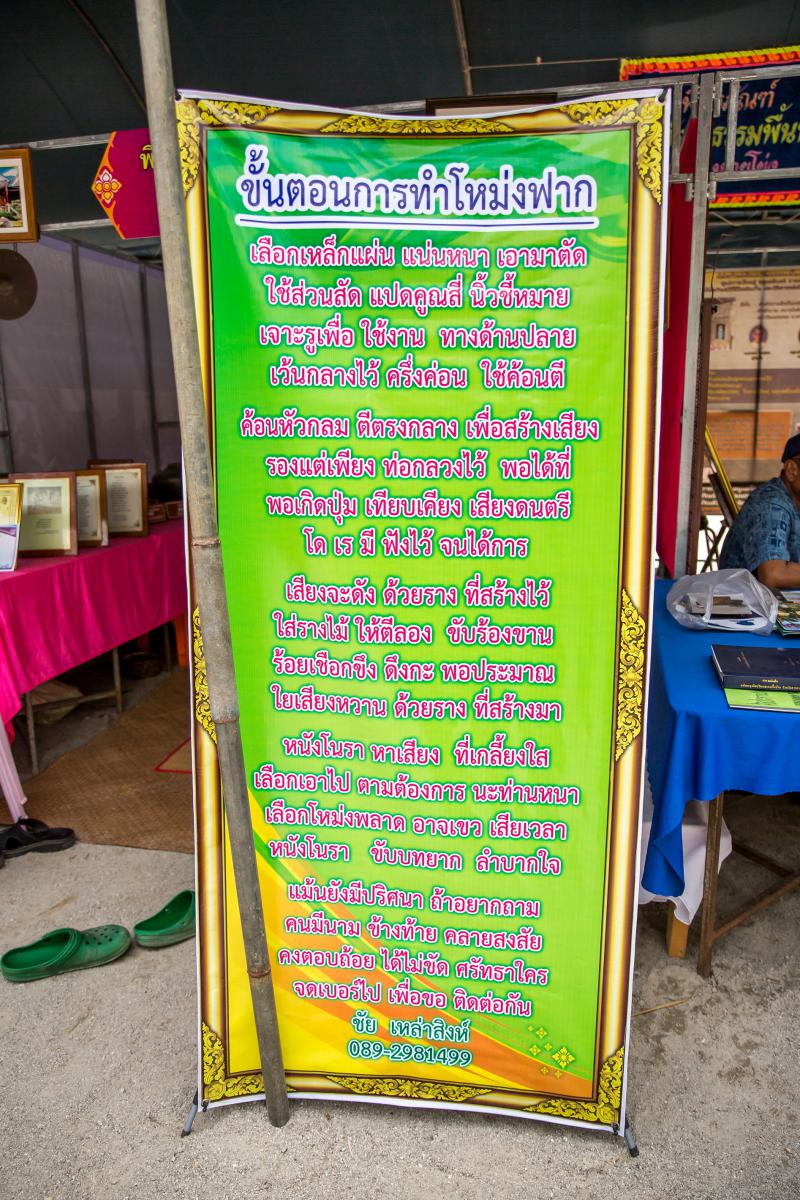 ขั้นตอนการทำโหม่งฟาก
เลือกเหล็กแผ่น แน่นหนา เอามาตัด
ใช้ส่วนสัด แปดคูณสี่ นิ้วชี้หมาย
เจาะรูเพื่อ ใช้งาน ทางด้านปลาย
เว้นกลางไว้ ครึ่งค่อน ใช้ค้อนตี
ค้อนหัวกลม ตีตรงกลาง เพื่อสร้างเสียง
รองแต่เพียง ท่อกลวงไว้ พอได้ที่
พอเกิดปุ่ม เทียบเคียง เสียงดนตรี
โด เร มี ฟังไว้ จนได้การ
เสียงจะดัง ด้วยราง ที่สร้างไว้
ใส่รางไม้ ให้ตีลอง ขับร้องขาน
ร้อยเชือกขึง ดึงกะ พอประมาณ
ใยเสียงหวาน ด้วยราง ที่สร้างมา
หนังโนรา หาเสียง ที่เกลี้ยงใส
เลือกเอาไป ตามต้องการ นะท่านหนา
เลือกโหม่งพลาด อาจเขว เสียเวลา
หนังโนรา ขับบทยาก ลำบากใจ
แม้นยังมีปริศนา ถ้าอยากถาม
คนมีนาม ข้างท้าย คลายสงสัย
คงตอบถ้อย ได้ไม่ขัด ศรัทธาใคร
จดเบอร์ไป เพื่อขอ ติดต่อกัน
ชัย เหล่าสิงห์
089-2981499